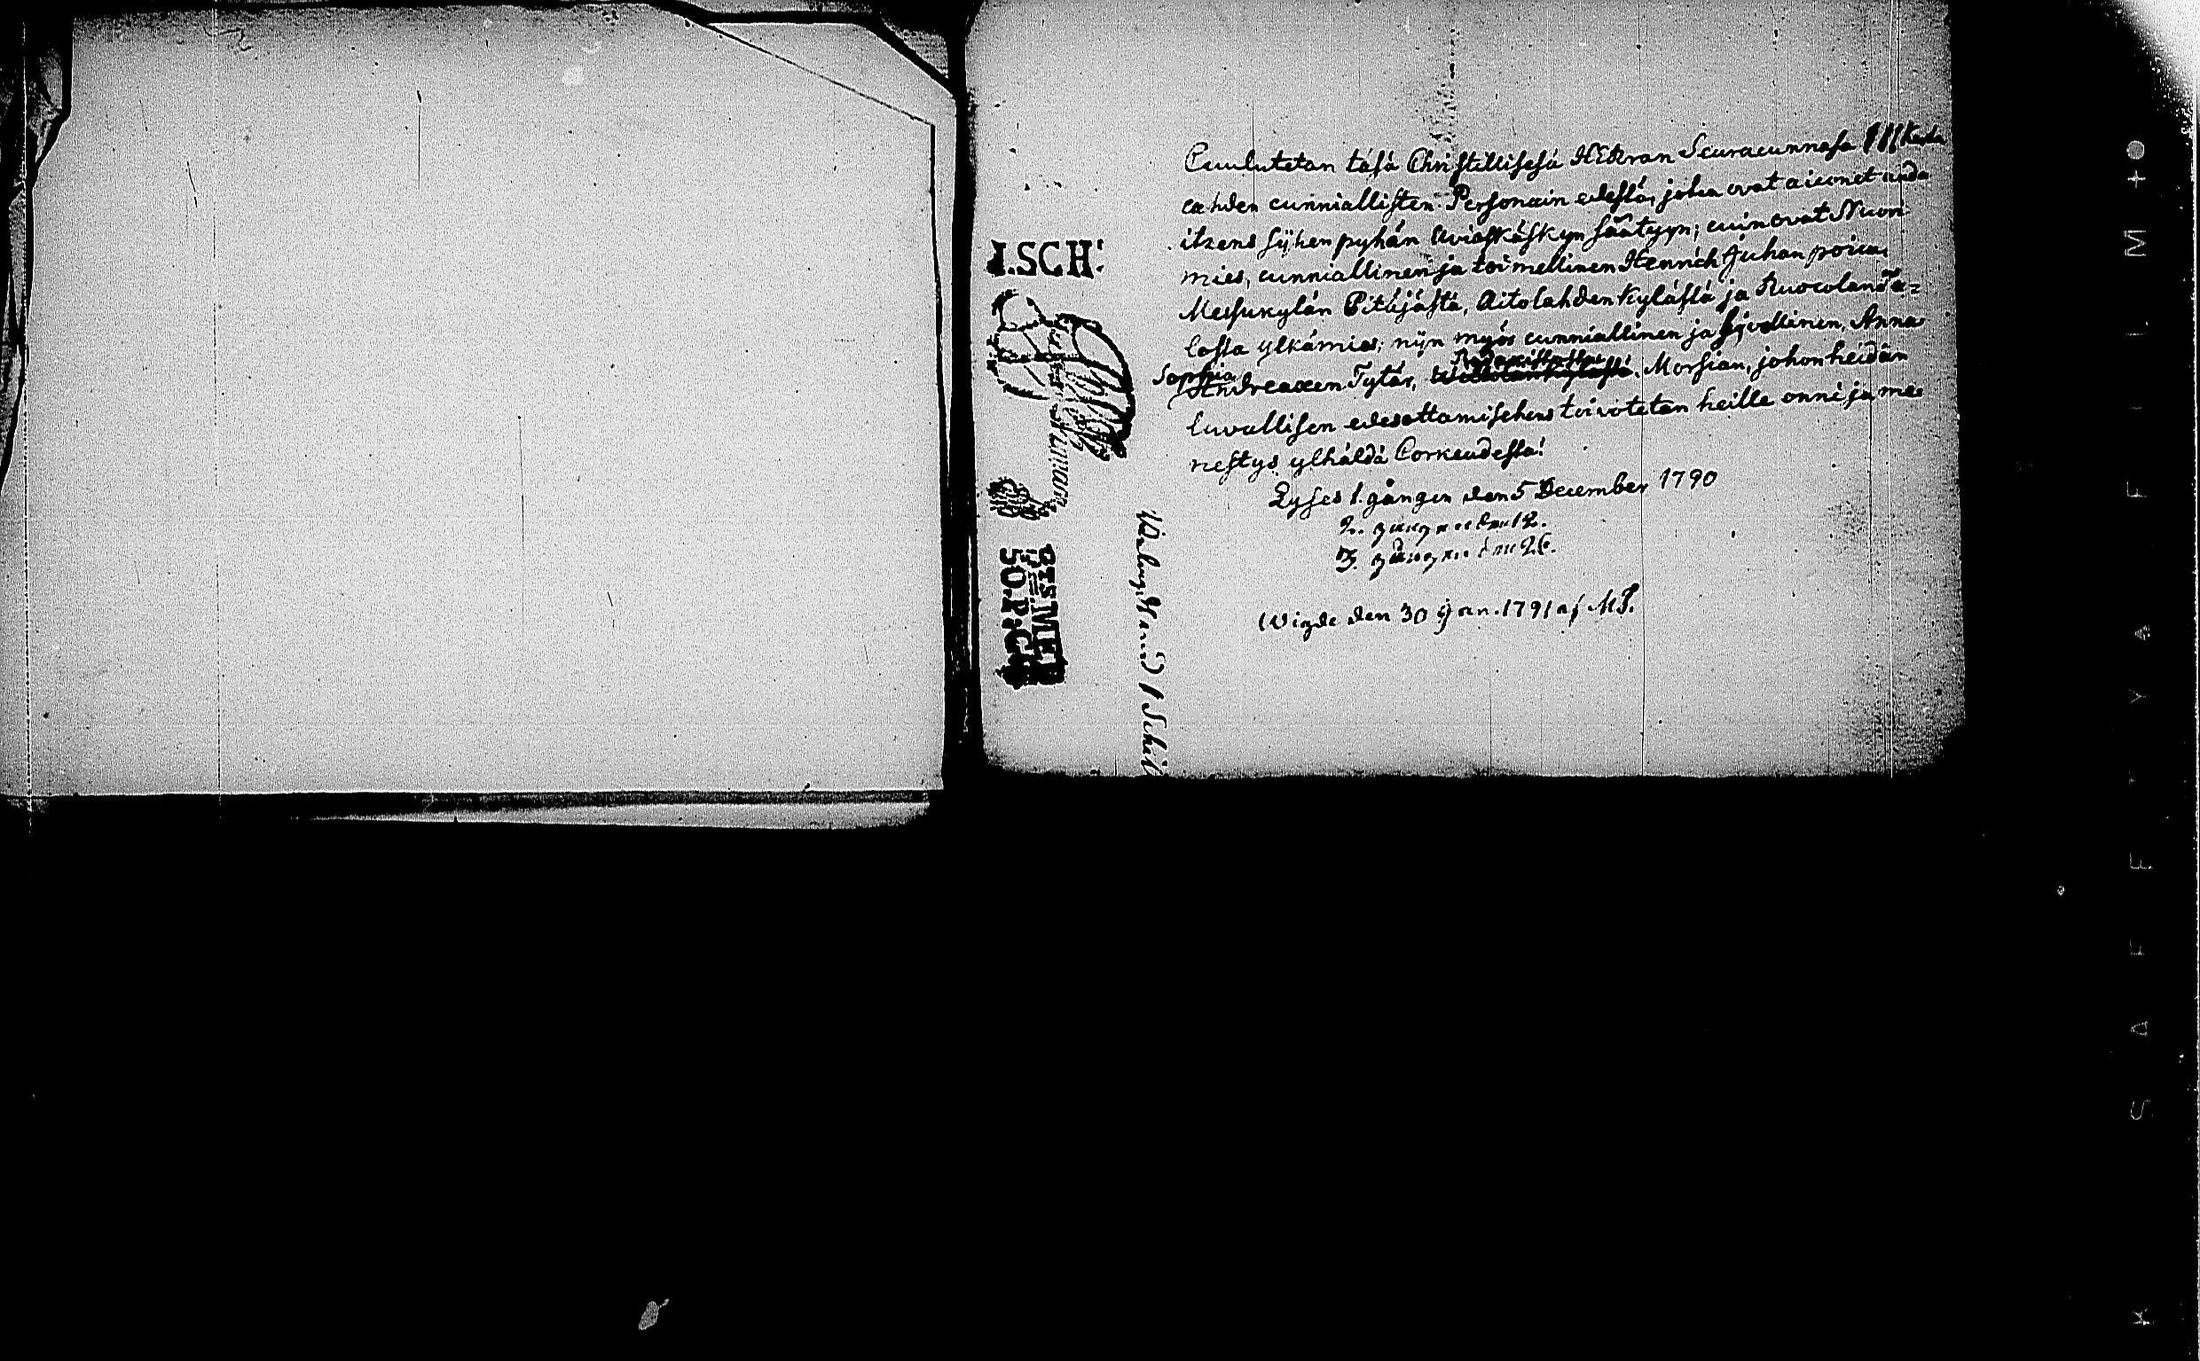 Cuulutetan täsä Christillisesä HERran Seuracunnasa III Kerta
cahden cunniallisten Personain edestä, jotca ovat aiconet anda
itzens sijhen pyhän Aviaskäskyn säätyyn; cuin ovat Nuori
mies, cunniallinen ja toimellinen Henrich Juhan poica,
Messukylän Pitäjästä, Aitolahden kylästä ja Ruocolan Ta=
losta ylkämies; nijn myös cunniallinen ja siwollinen, Anna
Sophia
Andreaxen Tytär, Morsian, johon heidän
luvallisen edesottamisehens toivotetan heille onni ja me-
nestys ylhäldä Corkeudesta!
Lyses 1. gången den 5 December 1790
2. gången den 12.
3. gången den 26.
Wigde den 30 Jan. 1791 af MP.
I.SCH:
50.P:C